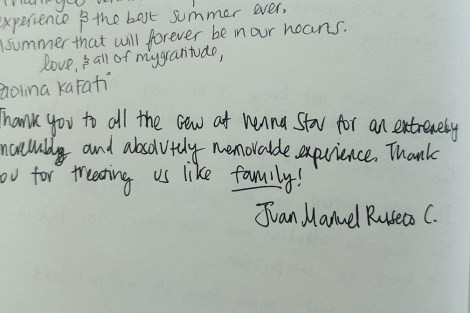 experience & the best summer ever.
summer that will forever be in our hearts.
love, & all of my gratitude,
Kafati
Thank you to all the crew at Henna Star for an extremely
and absolutely memorable experience. Thank
ou for treating us like family!
Juan Manuel Ruseco C.